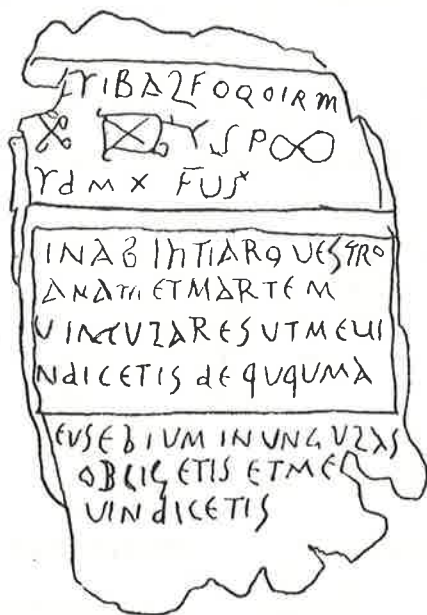 YIBALFOQOIRM
Y S P ∞
Y d M X FUS
INAB IhTIARQ VESTRO
ANATH ET MARTEM
UINCULARES UT ME UI
NdICETIS dE QUQUMA
EUSEBIUM IN UNGULAS
OBLIGETIS ET ME
UINdICETIS